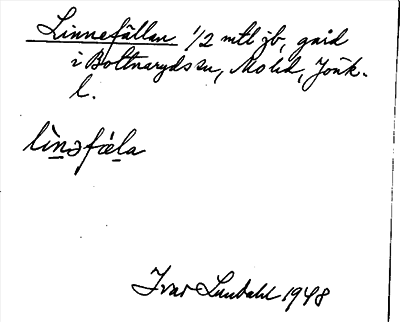 Linnefällan 1/2 mtl jb, gård
i Bottnaryds sn, Mo hd, Jönk.
l.
lìnəfæ̀la
Ivar Lundahl 1948